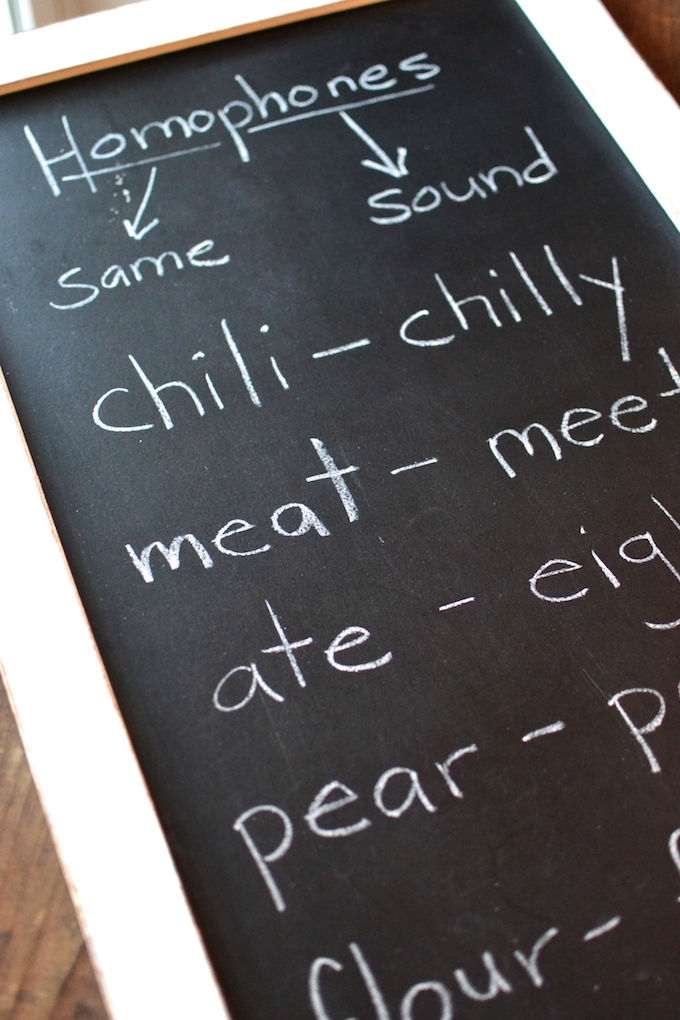 Homophones
same sound
chili - chilly
meat - meet
ate -
pear -
flour -